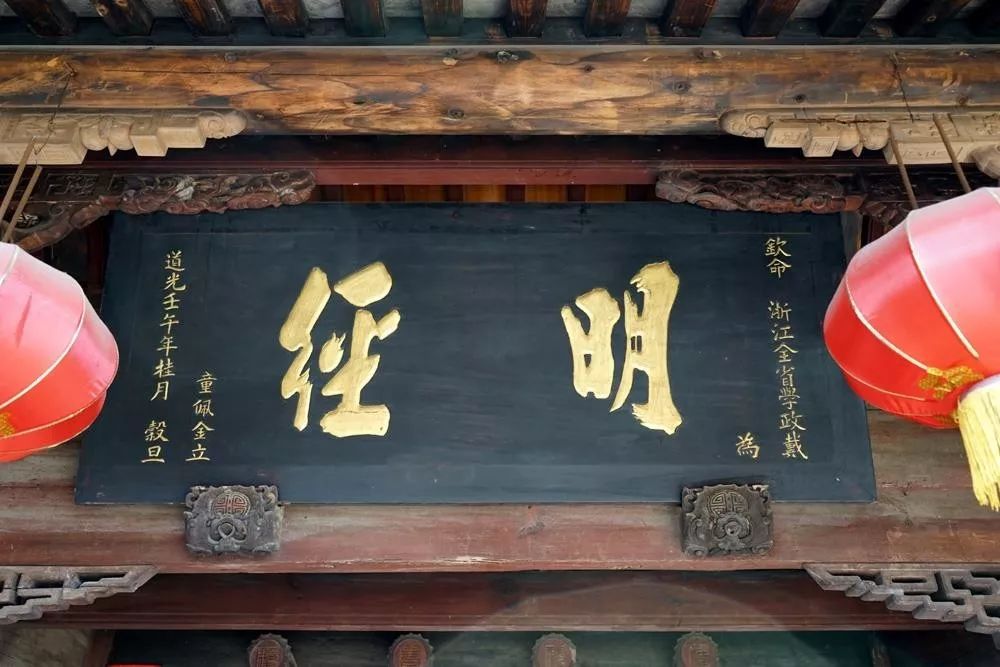 欽命 浙江全省學政戴
為
明經
童佩金立
道光壬午年桂月 穀旦